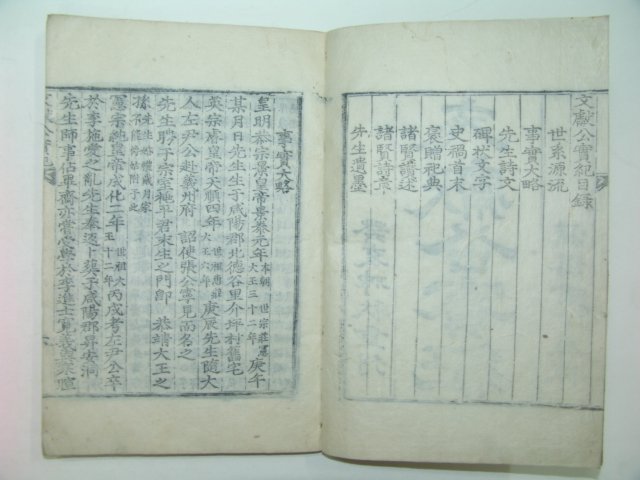 文獻公實紀目錄
世系源流
事實大略
先生詩文
碑狀文字
史禍首末
褒贈祀典
諸賢讚述
諸賢詩章
先生遺墨
事實大略
皇明恭宗景皇帝景泰元年 本朝 世宗莊憲大王三十二年 庚午
某月日先生生于咸陽郡北德谷里介坪村舊宅
英宗睿皇帝天順四年 世祖 大王六年 庚辰先生隨大
人左尹公赴義州府 詔使張公寧見而名之
先生聘于宗室桃平君末生之門卽 恭靖大王之
孫
憲宗純皇帝成化二年 世祖大王十二年 丙戌考左尹公卒
於李施愛之亂先生奉返葬于咸陽郡昇安洞
先生師事佔畢齋亦嘗